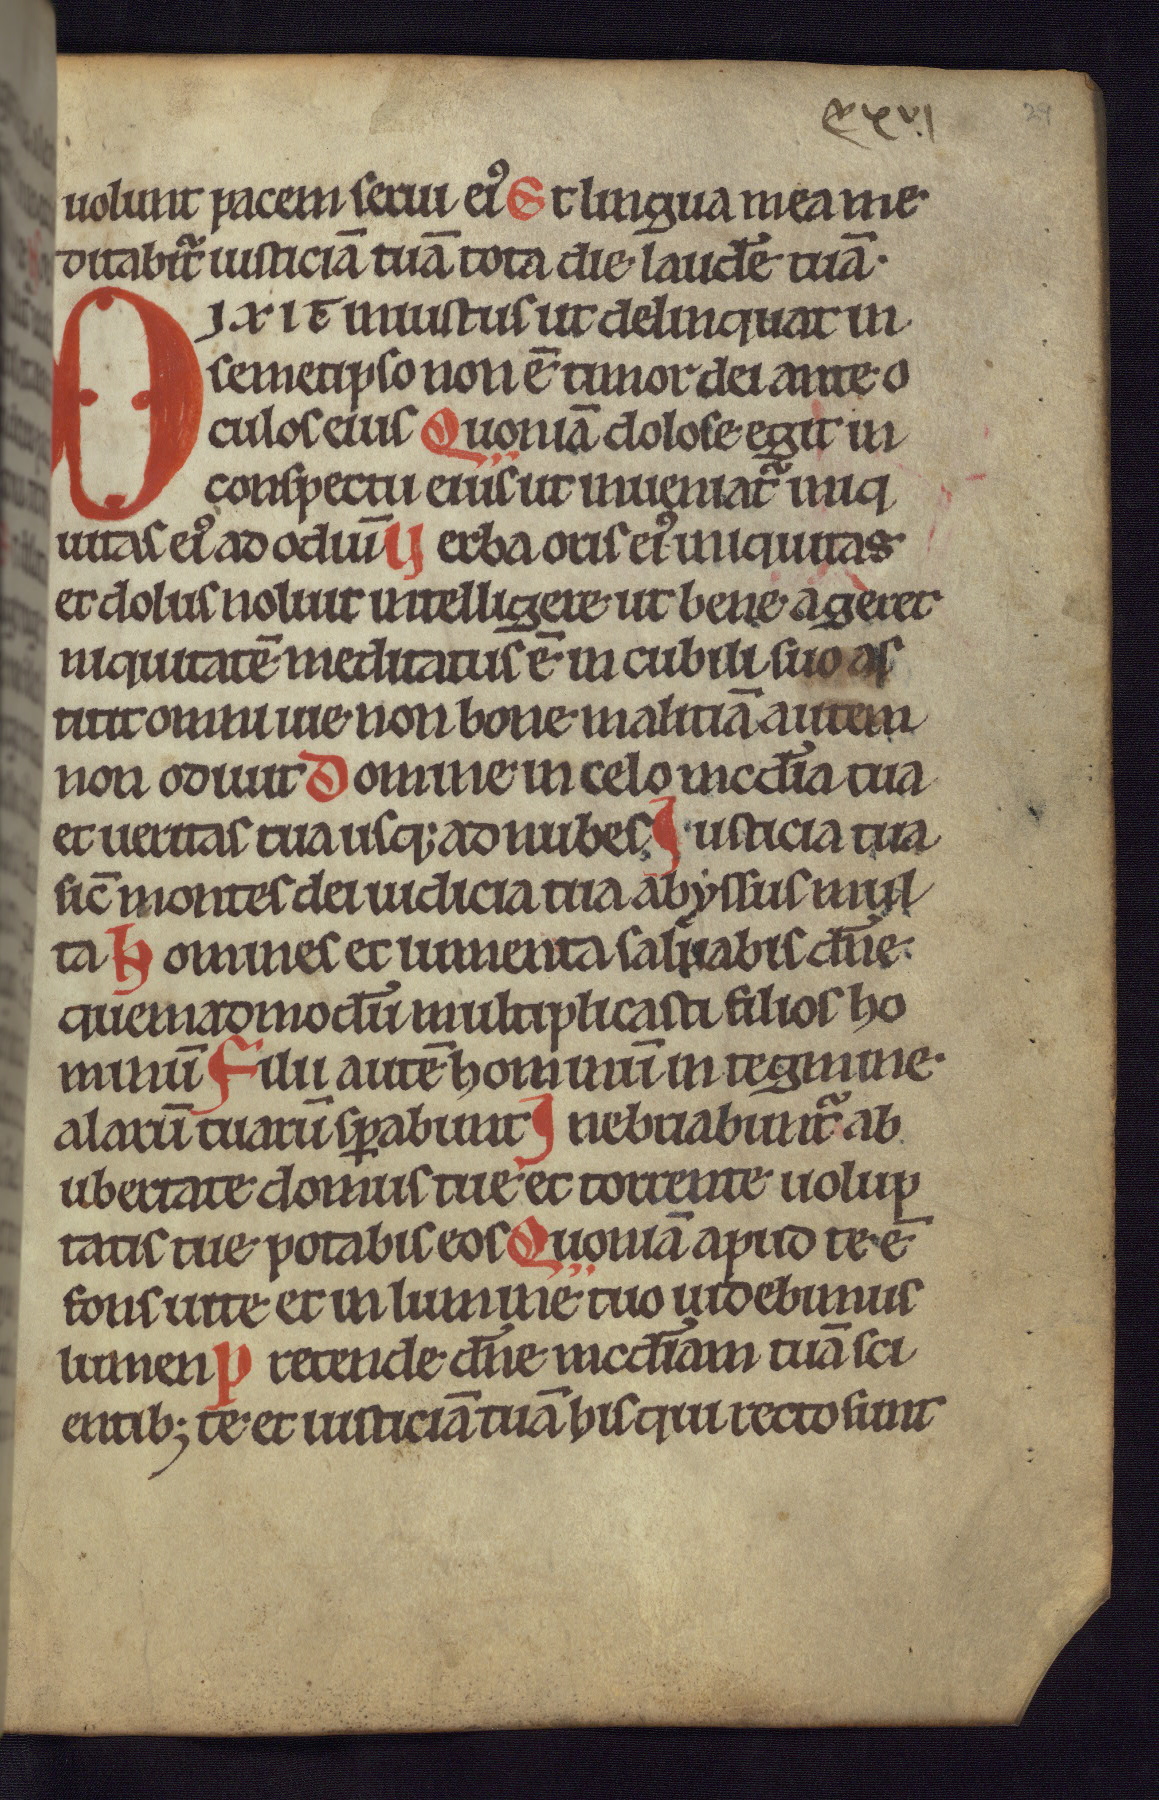 xxvi 29
uolunt pacem serui ei9 Et lingua mea me
ditabit᷑ iusticiā tuā tota die laudē tuā.
DIXIT̄ iniustus ut delinquat in
semetipso non ē timor dei ante o
culos eius Quoniā dolose egit in
conspectu eius ut inueniat᷑ iniq
uitas ei9 ad odiū Verba oris ei9 iniquitas
et dolus noluit intelligere ut bene ageret
niquitatē meditatus ē in cubili suo as
titit omni uie non bone malitiā autem
non odiuit Domine in celo mcd̄ia tua
et ueritas tua usq; ad nubes Iusticia tua
sic̄ montes dei iudicia tua abyssus mul
ta Homines et iumenta saluabis dn̄e.
quemadmodū multiplicasti filios ho
minū Filii autē hominū in tegmine
alarū tuarū sꝑabunt Inebriabunt᷑ ab
ubertate domus tue et torrente uolup
tatis tue potabis eos Quoniā apud te ē
fons uite et in lumine tuo uidebimus
lumen Pretende dn̄e mcd̄iam tuā sci
entib; te et iusticiā tuā his qui recto sunt